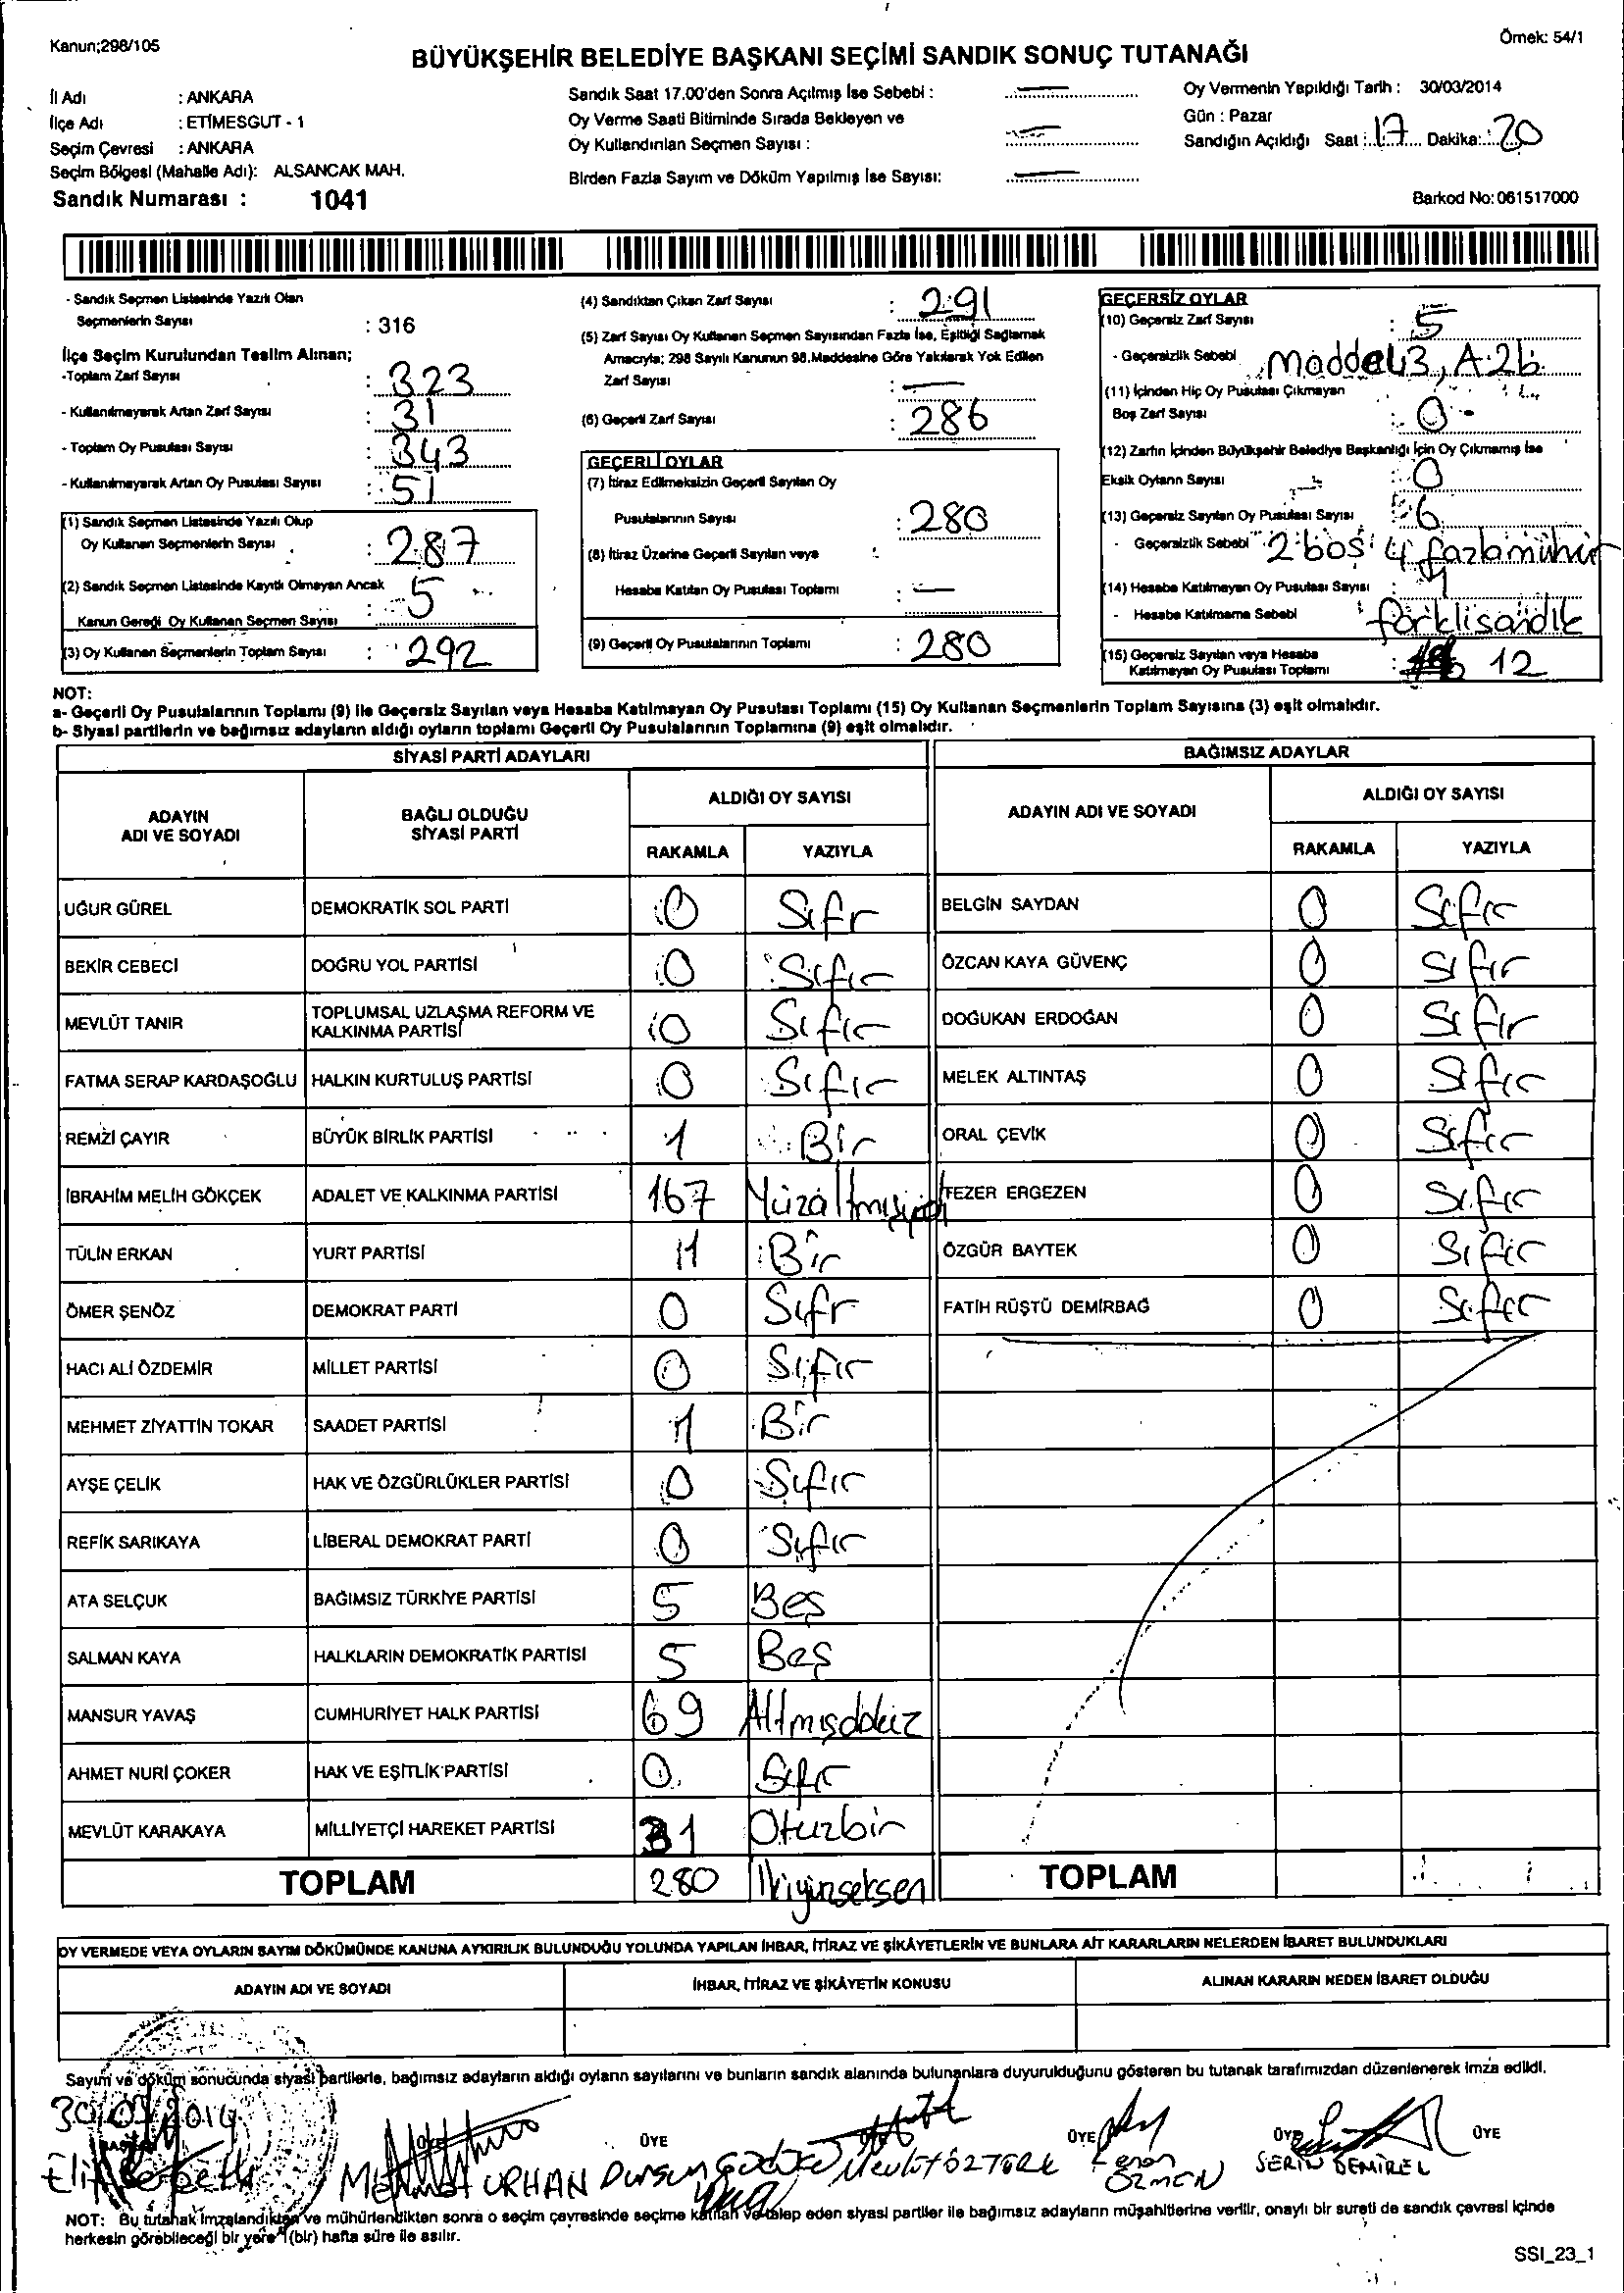 Kanun;298/105
Örnek: 54/1
BÜYÜKŞEHİR BELEDİYE BAŞKANI SEÇİMİ SANDIK SONUÇ TUTANAĞI
İl Adı : ANKARA
İlçe Adı : ETİMESGUT - 1
Seçim Çevresi : ANKARA
Seçim Bölgesi (Mahalle Adı): ALSANCAK MAH.
Sandık Numarası : 1041
Sandık Saat 17.00'den Sonra Açılmış İse Sebebi : —
Oy Verme Saati Bitiminde Sırada Bekleyen ve
Oy Kullandırılan Seçmen Sayısı : —
Birden Fazla Sayım ve Döküm Yapılmış İse Sayısı: —
Oy Vermenin Yapıldığı Tarih : 30/03/2014
Gün : Pazar
Sandığın Açıldığı Saat : 17 Dakika: 20
Barkod No: 061517000
- Sandık Seçmen Listesinde Yazılı Olan
Seçmenlerin Sayısı : 316
İlçe Seçim Kurulundan Teslim Alınan;
-Toplam Zarf Sayısı : 323
- Kullanılmayarak Artan Zarf Sayısı : 31
- Toplam Oy Pusulası Sayısı : 343
- Kullanılmayarak Artan Oy Pusulası Sayısı : 51
(1) Sandık Seçmen Listesinde Yazılı Olup
Oy Kullanan Seçmenlerin Sayısı : 287
(2) Sandık Seçmen Listesinde Kayıtlı Olmayan Ancak
Kanun Gereği Oy Kullanan Seçmen Sayısı : 5
(3) Oy Kullanan Seçmenlerin Toplam Sayısı : 292
(4) Sandıktan Çıkan Zarf Sayısı : 291
(5) Zarf Sayısı Oy Kullanan Seçmen Sayısından Fazla İse, Eşitliği Sağlamak
Amacıyla; 298 Sayılı Kanunun 98.Maddesine Göre Yakılarak Yok Edilen
Zarf Sayısı : —
(6) Geçerli Zarf Sayısı : 286
GEÇERLİ OYLAR
(7) İtiraz Edilmeksizin Geçerli Sayılan Oy
Pusulalarının Sayısı : 280
(8) İtiraz Üzerine Geçerli Sayılan veya
Hesaba Katılan Oy Pusulası Toplamı : —
(9) Geçerli Oy Pusulalarının Toplamı : 280
GEÇERSİZ OYLAR
(10) Geçersiz Zarf Sayısı : 5
- Geçersizlik Sebebi
(11) İçinden Hiç Oy Pusulası Çıkmayan
Boş Zarf Sayısı : 0
(12) Zarfın İçinden Büyükşehir Belediye Başkanlığı İçin Oy Çıkmamış İse
Eksik Oyların Sayısı : 0
(13) Geçersiz Sayılan Oy Pusulası Sayısı : 6
- Geçersizlik Sebebi : 2 boş 4 fazla mühür
(14) Hesaba Katılmayan Oy Pusulası Sayısı :
- Hesaba Katılmama Sebebi : farklı sandık
(15) Geçersiz Sayılan veya Hesaba
Katılmayan Oy Pusulası Toplamı : 12
NOT:
a- Geçerli Oy Pusulalarının Toplamı (9) ile Geçersiz Sayılan veya Hesaba Katılmayan Oy Pusulası Toplamı (15) Oy Kullanan Seçmenlerin Toplam Sayısına (3) eşit olmalıdır.
b- Siyasi partilerin ve bağımsız adayların aldığı oyların toplamı Geçerli Oy Pusulalarının Toplamına (9) eşit olmalıdır.
SİYASİ PARTİ ADAYLARI
ADAYIN ADI VE SOYADI BAĞLI OLDUĞU SİYASİ PARTİ ALDIĞI OY SAYISI RAKAMLA YAZIYLA
UĞUR GÜREL DEMOKRATİK SOL PARTİ 0 Sıfr
BEKİR CEBECİ DOĞRU YOL PARTİSİ 0 Sıfır
MEVLÜT TANIR TOPLUMSAL UZLAŞMA REFORM VE KALKINMA PARTİSİ 0 Sıfır
FATMA SERAP KARDAŞOĞLU HALKIN KURTULUŞ PARTİSİ 0 Sıfır
REMZİ ÇAYIR BÜYÜK BİRLİK PARTİSİ 1 Bir
İBRAHİM MELİH GÖKÇEK ADALET VE KALKINMA PARTİSİ 167 Yüzaltmışyedi
TÜLİN ERKAN YURT PARTİSİ 1 Bir
ÖMER ŞENÖZ DEMOKRAT PARTİ 0 Sıfr
HACI ALİ ÖZDEMİR MİLLET PARTİSİ 0 Sıfır
MEHMET ZİYATTİN TOKAR SAADET PARTİSİ 1 Bir
AYŞE ÇELİK HAK VE ÖZGÜRLÜKLER PARTİSİ 0 Sıfır
REFİK SARIKAYA LİBERAL DEMOKRAT PARTİ 0 Sıfır
ATA SELÇUK BAĞIMSIZ TÜRKİYE PARTİSİ 5 Beş
SALMAN KAYA HALKLARIN DEMOKRATİK PARTİSİ 5 Beş
MANSUR YAVAŞ CUMHURİYET HALK PARTİSİ 69 Altmışdokuz
AHMET NURİ ÇOKER HAK VE EŞİTLİK PARTİSİ 0 Sıfr
MEVLÜT KARAKAYA MİLLİYETÇİ HAREKET PARTİSİ 31 Otuzbir
TOPLAM 280 İkiyüzseksen
BAĞIMSIZ ADAYLAR
ADAYIN ADI VE SOYADI ALDIĞI OY SAYISI RAKAMLA YAZIYLA
BELGİN SAYDAN 0 Sıfır
ÖZCAN KAYA GÜVENÇ 0 Sıfır
DOĞUKAN ERDOĞAN 0 Sıfır
MELEK ALTINTAŞ 0 Sıfır
ORAL ÇEVİK 0 Sıfır
TEZER ERGEZEN 0 Sıfır
ÖZGÜR BAYTEK 0 Sıfır
FATİH RÜŞTÜ DEMİRBAĞ 0 Sıfır
TOPLAM
OY VERMEDE VEYA OYLARIN SAYIM DÖKÜMÜNDE KANUNA AYKIRILIK BULUNDUĞU YOLUNDA YAPILAN İHBAR, İTİRAZ VE ŞİKÂYETLERİN VE BUNLARA AİT KARARLARIN NELERDEN İBARET BULUNDUKLARI
ADAYIN ADI VE SOYADI İHBAR, İTİRAZ VE ŞİKÂYETİN KONUSU ALINAN KARARIN NEDEN İBARET OLDUĞU
Sayım ve döküm sonucunda siyasi partilerle, bağımsız adayların aldığı oyların sayılarını ve bunların sandık alanında bulunanlara duyurulduğunu gösteren bu tutanak tarafımızdan düzenlenerek imza edildi.
30/03/2014
BAŞKAN ÜYE ÜYE ÜYE ÜYE ÜYE
Mehmet URHAN Dursun Mevlüt ÖZTÜRK Kenan ÖZMEN SERİN DEMİREL
NOT: Bu tutanak imzalandıktan ve mühürlendikten sonra o seçim çevresinde seçime katılan ve talep eden siyasi partiler ile bağımsız adayların müşahitlerine verilir, onaylı bir sureti de sandık çevresi içinde
herkesin görebileceği bir yere 1 (bir) hafta süre ile asılır.
SSI_23_1